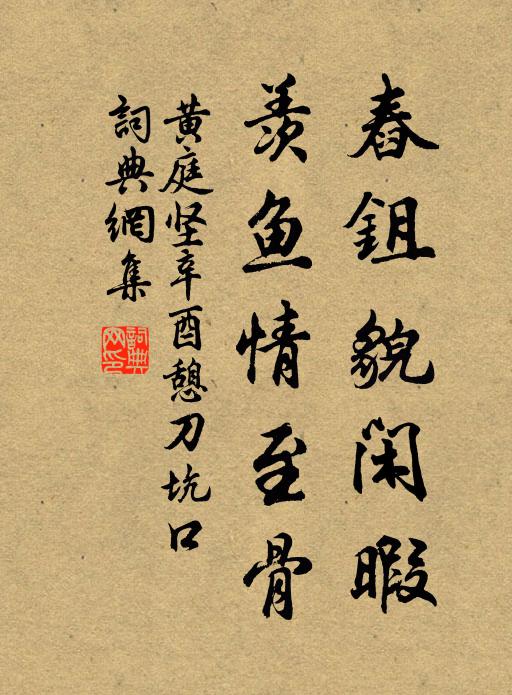 舂鉏貌闲暇
羡鱼情至骨
黄庭坚辛酉憩刀坑口
詞典網集
詞典网印